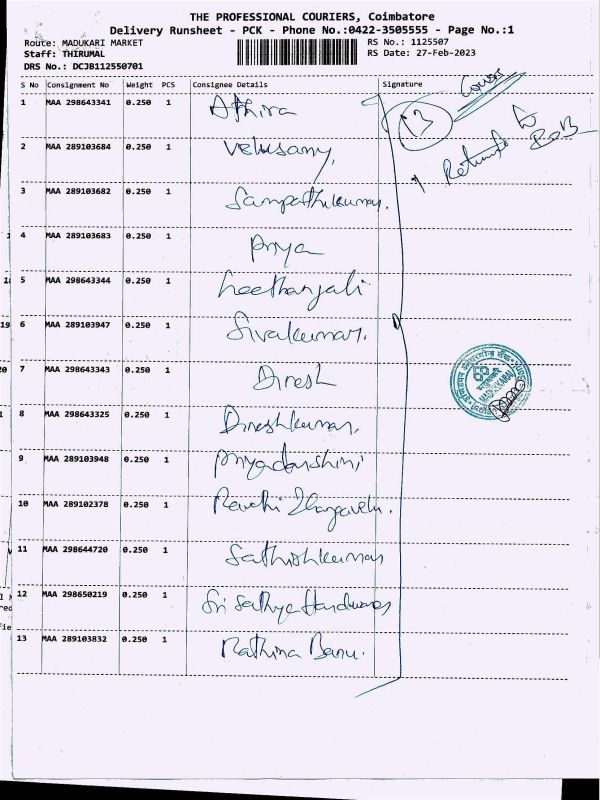 THE PROFESSIONAL COURIERS, Coimbatore
Delivery Runsheet - PCK - Phone No.:0422-3505555 - Page No.:1
Route: MADUKARI MARKET RS No.: 1125507
Staff: THIRUMAL RS Date: 27-Feb-2023
DRS No.: DCJB112550701
S No Consignment No Weight PCS Consignee Details Signature
1 MAA 298643341 0.250 1 Athira
13
Returned to BOB
2 MAA 289103684 0.250 1 Velusamy,
3 MAA 289103682 0.250 1 Sampathkumar.
4 MAA 289103683 0.250 1 Priya
5 MAA 298643344 0.250 1 Geethanjali
6 MAA 289103947 0.250 1 Sivakumar.
7 MAA 298643343 0.250 1 Dinesh
8 MAA 298643325 0.250 1 Dineshkumar,
9 MAA 289103948 0.250 1 Priyadarshini
10 MAA 289102378 0.250 1 Revathi
11 MAA 298644720 0.250 1 Sathishkumar
12 MAA 298650219 0.250 1 Sri Sathya Hardwares
13 MAA 289103832 0.250 1 Rathina Banu.